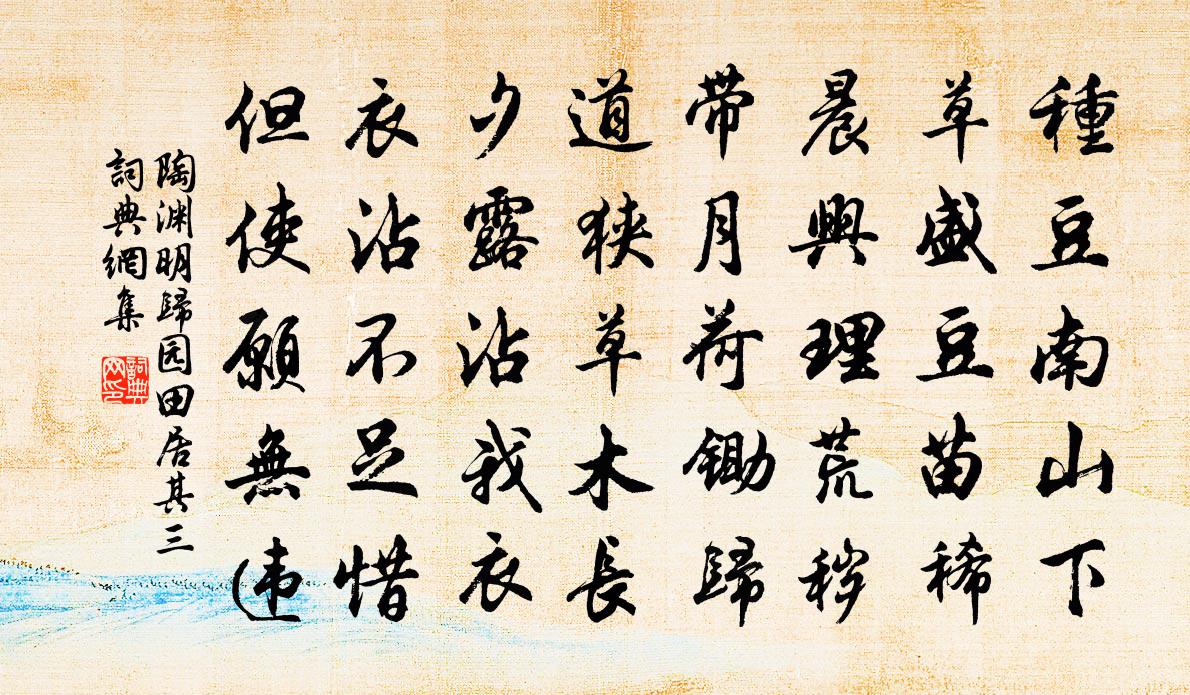 種豆南山下
草盛豆苗稀
晨興理荒秽
带月荷鋤歸
道狭草木長
夕露沾我衣
衣沾不足惜
但使願無违
陶渊明歸园田居其三
詞典網集
詞典
网印